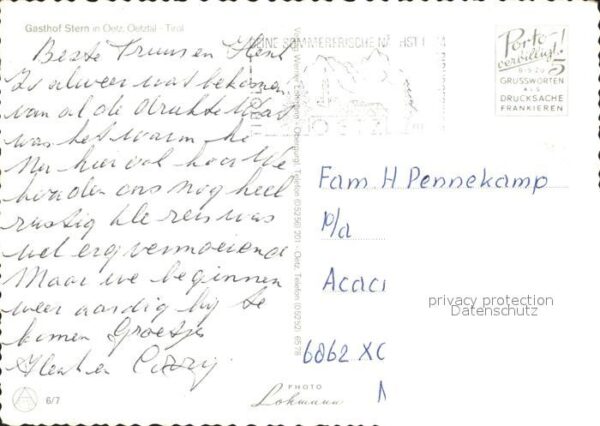 Gasthof Stern in Oetz, Oetztal - Tirol
Beste Truus en Henk
Is alweer wat bekomen
van al de drukte Wat
was het warm he
Nu hier ook hoor We
houden ons nog heel
rustig de reis was
wel erg vermoeiend
Maar we beginnen
weer aardig bij te
komen Groetjes
Henk en
6/7
PHOTO
Lohmann
EINE SOMMERFRISCHE
Oetz, Telefon (05252) 6578
Telefon (05256) 201
Porto
verbilligt!
5
GRUSSWORTEN
ALS
DRUCKSACHE
FRANKIEREN
Fam. H Pennekamp
p/a
Acaci
6862 XC
privacy protection
Datenschutz